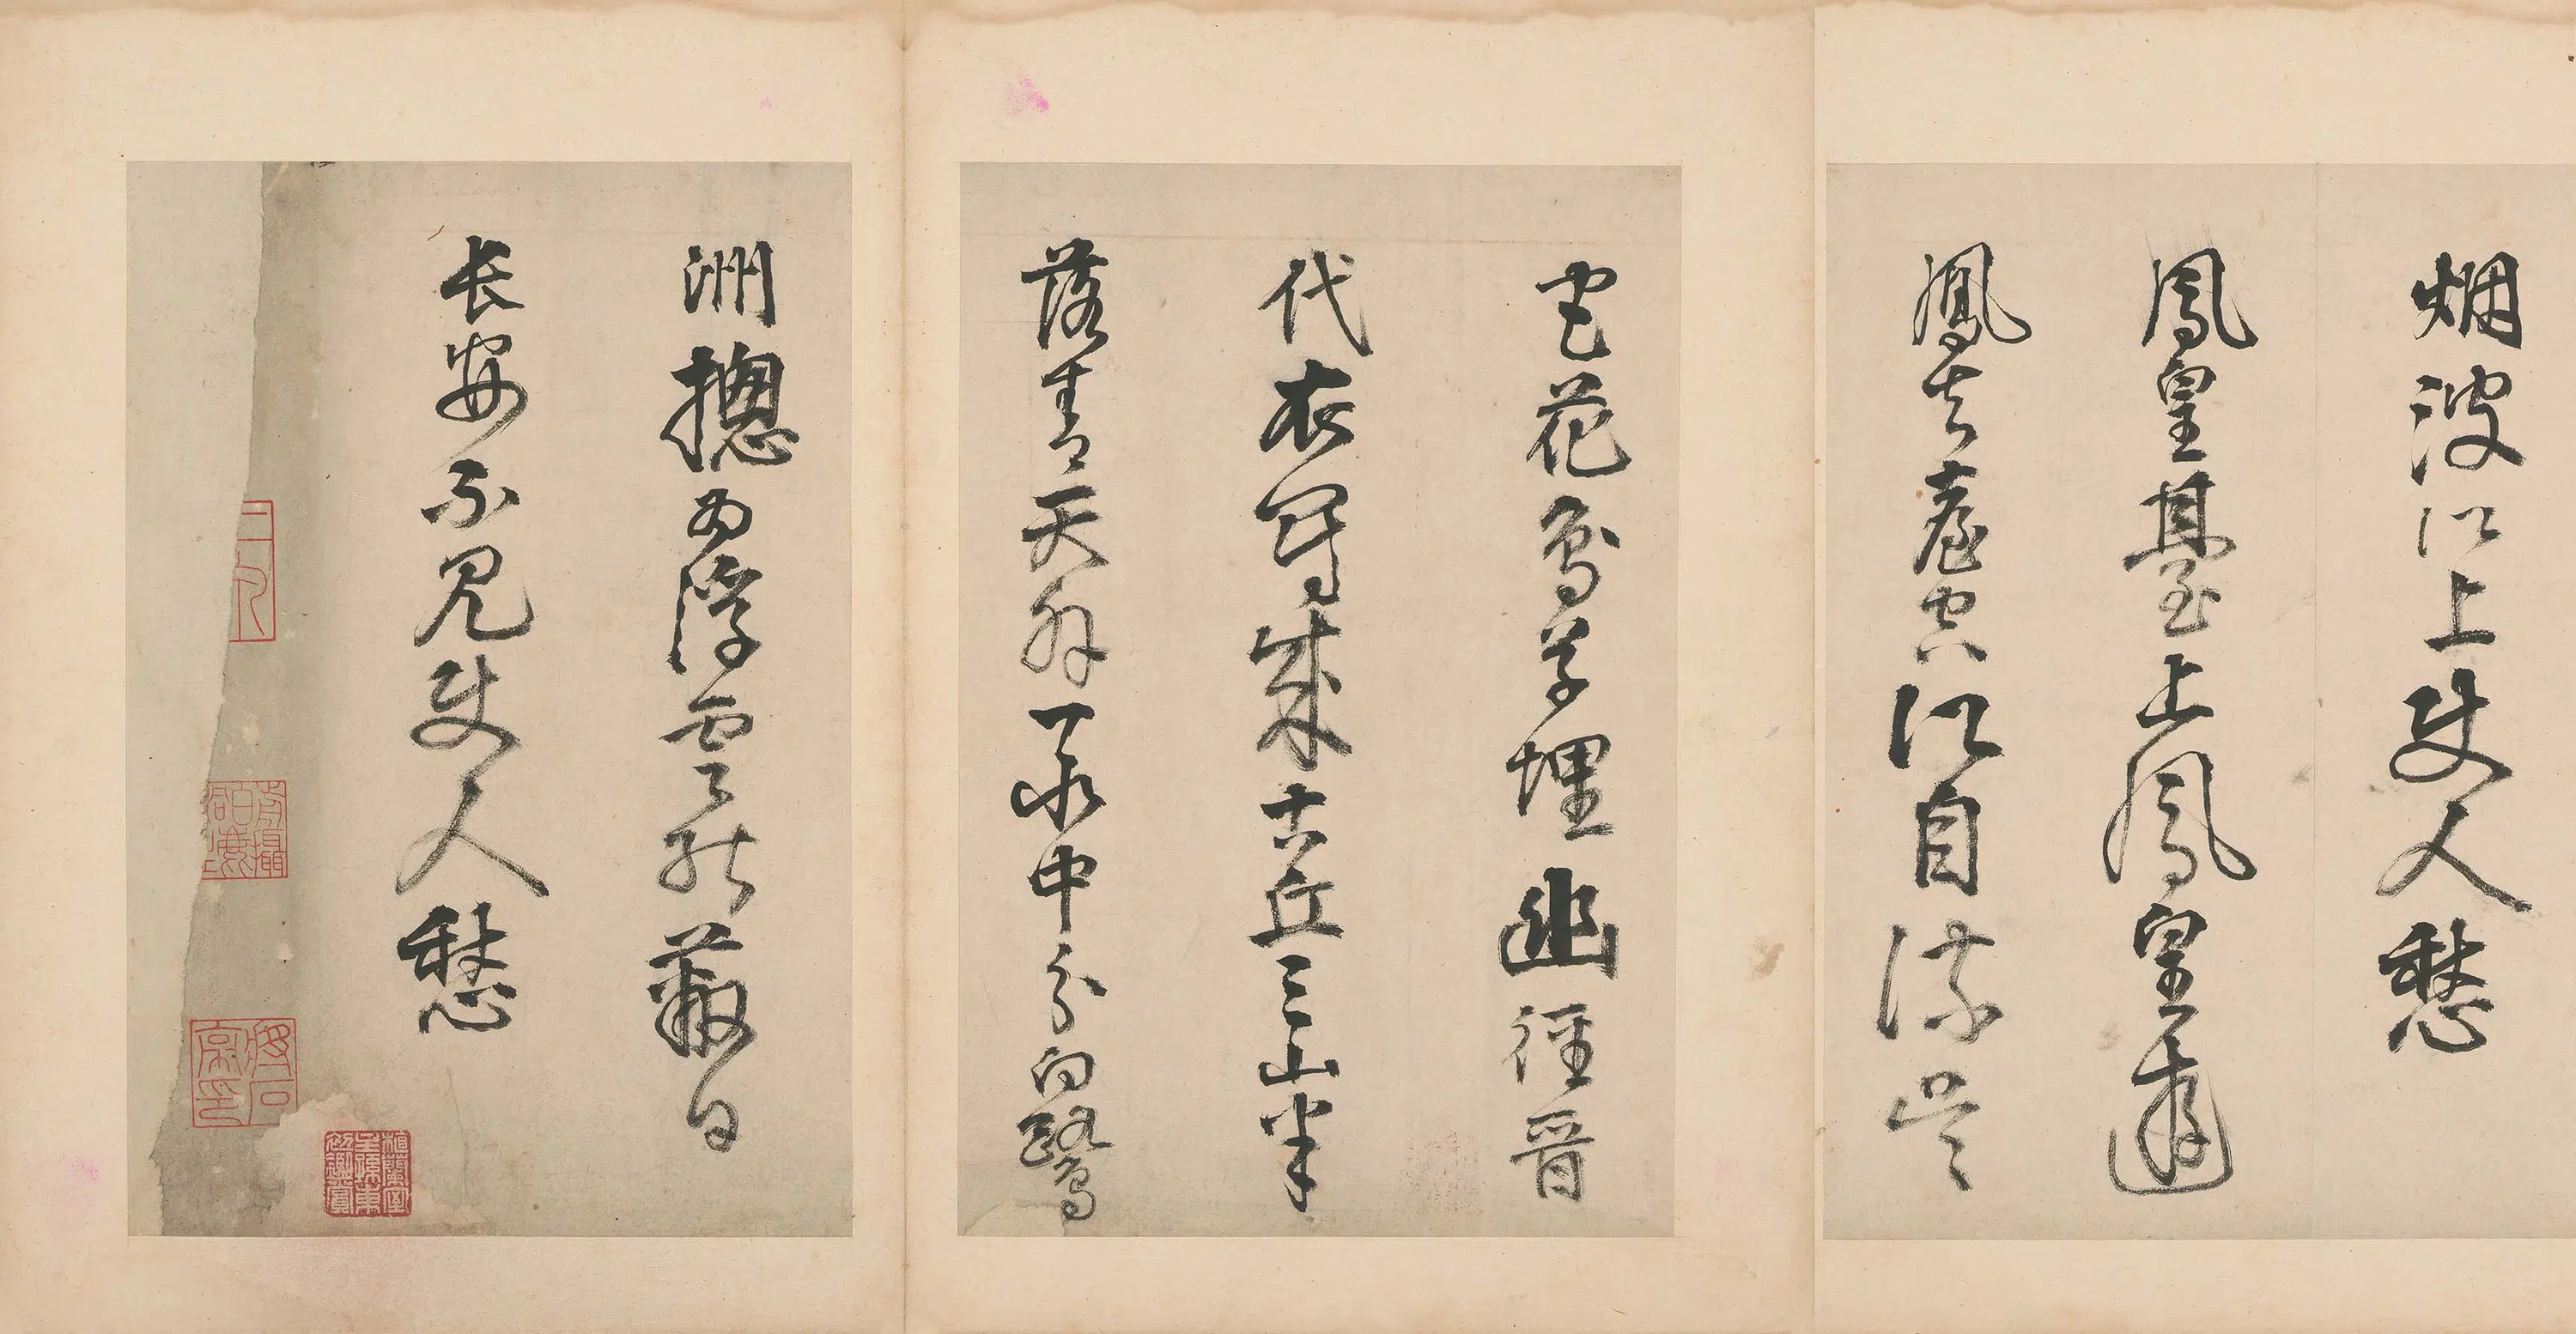 烟波江上使人愁
鳳皇臺上鳳皇遊
鳳去臺空江自流吳
宮花鳥草埋幽徑晉
代衣冠成古丘三山半
落青天外一水中分白鷺
洲摠為浮雲能蔽日
長安不見使人愁